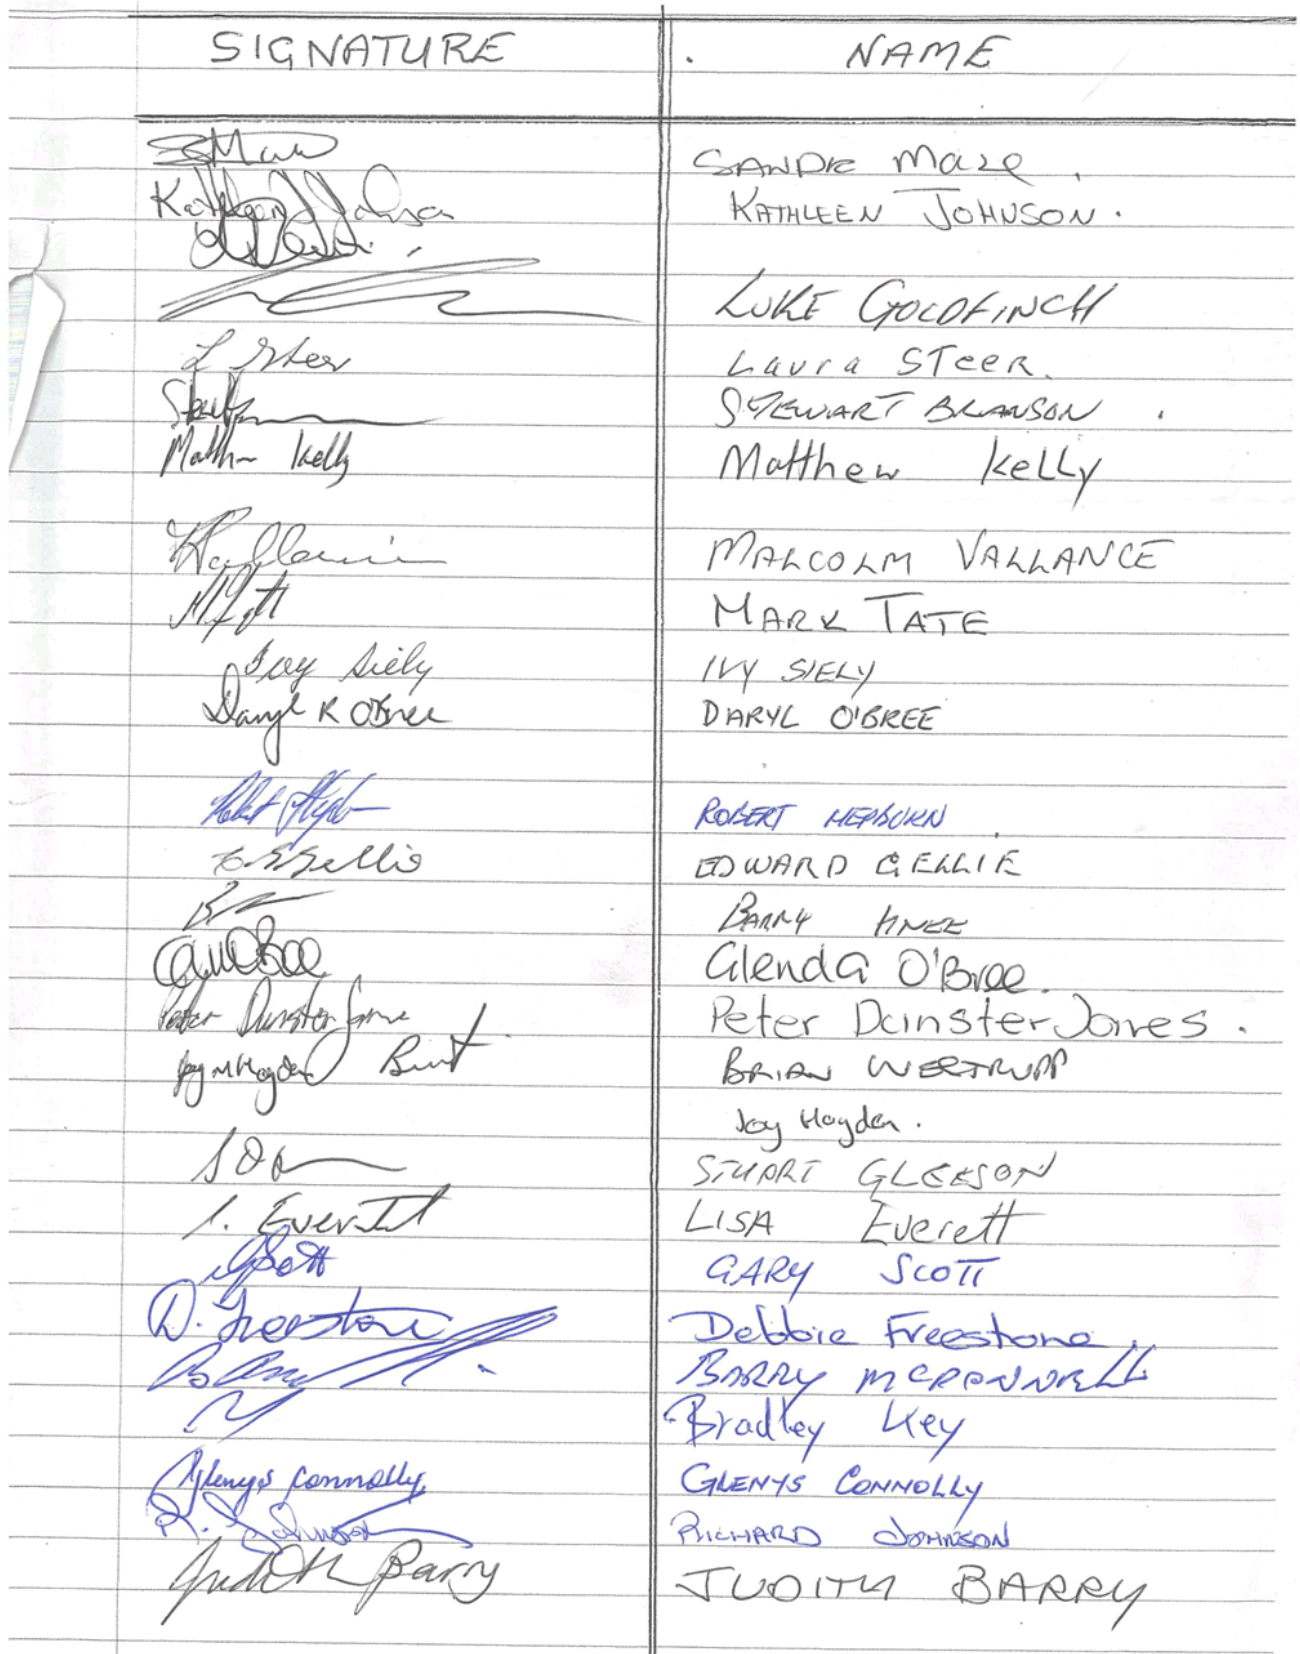 SIGNATURE NAME
SANDRE Maze
Kathleen Johnson KATHLEEN JOHNSON.
LUKE GOLDFINCH
L Steer Laura STeeR.
STEWART BRANSON
Matthew Kelly Matthew KeLLy
MALCOLM VALLANCE
MARK TATE
Ivy Siely IVY SIELY
Daryl R O'Bree DARYL O'BREE
Robert ROBERT HEPBURN
E. Gellie EDWARD GELLIE
BARRY KNEE
Glenda O'Bree.
Peter Dunster Jones Peter DunsterJones.
Joy M Hayden BRIAN
Joy Hayden.
STUART GLEESON
L. Everett LISA Everett
Scott GARY SCOTT
D. Freestone Debbie Freestone
BARRY
Bradley Key
Glenys Connolly GLENYS CONNOLLY
R. Johnson RICHARD JOHNSON
Judith Barry JUDITH BARRY